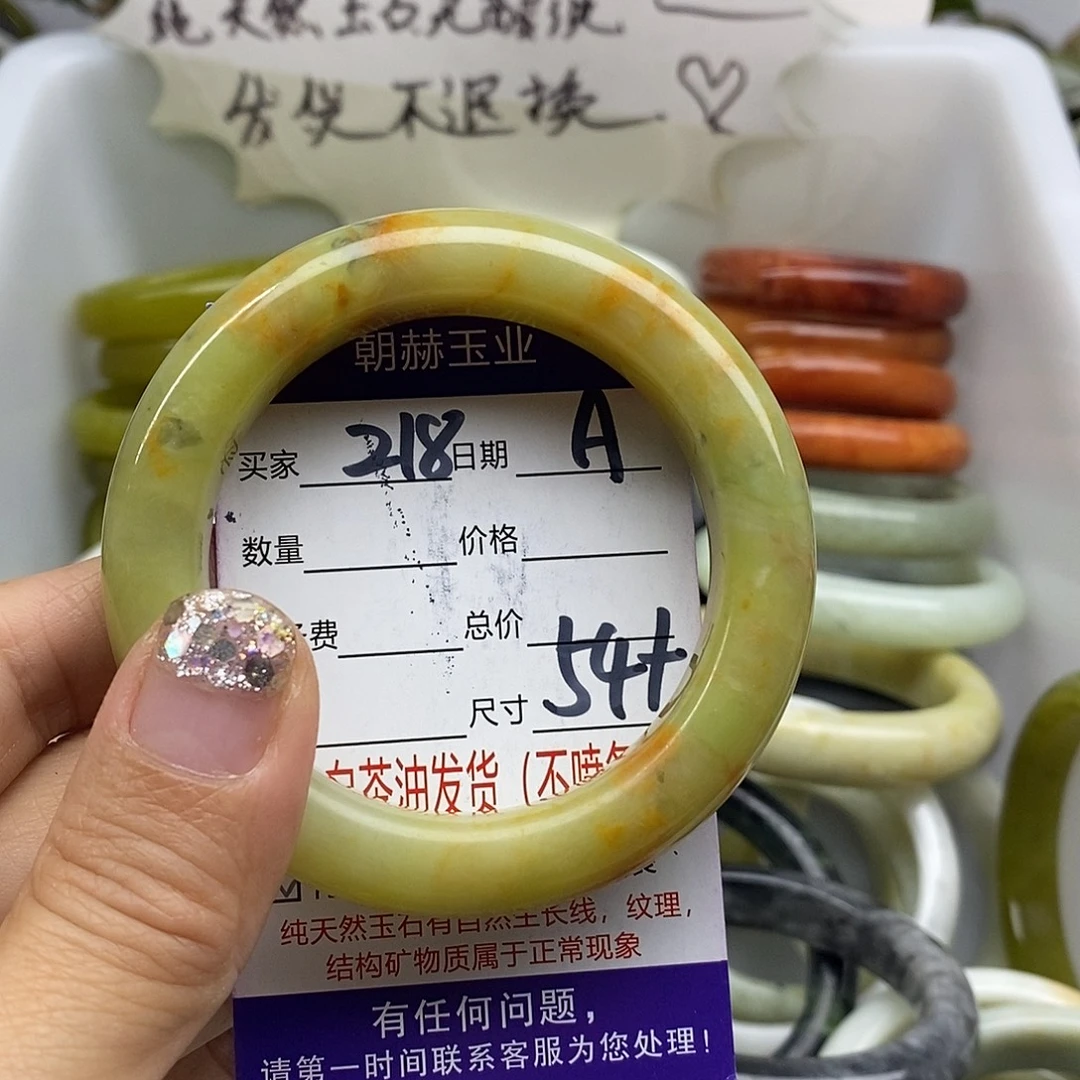 纯天然玉石无酸洗
售后不退换
朝赫玉业
买家 218 日期 A
数量 价格
费 总价
尺寸 54+
白茶油发货(不喷
纯天然玉石有自然生长线,纹理,
结构矿物质属于正常现象
有任何问题,
请第一时间联系客服为您处理!